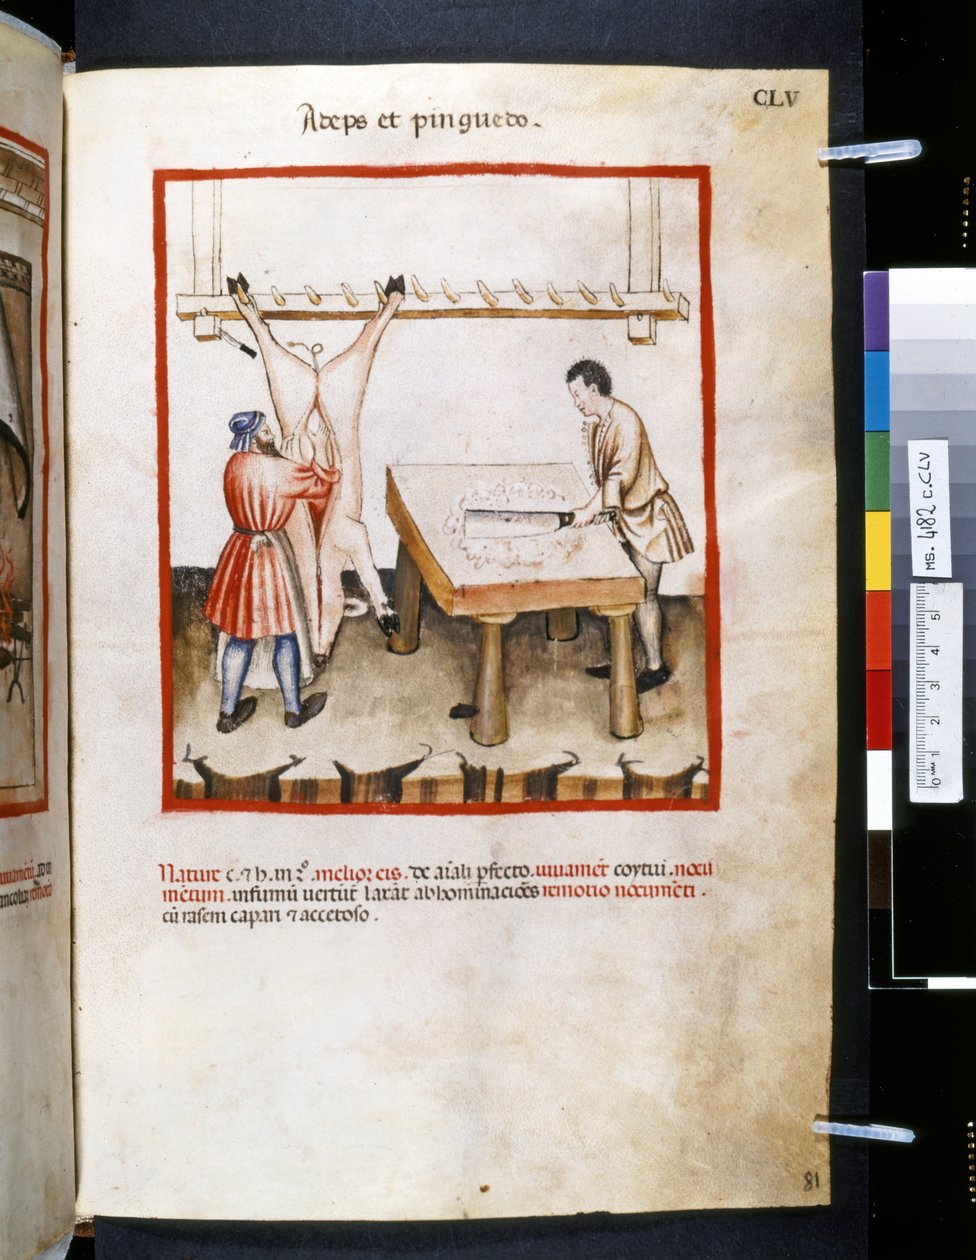 CLV
Adeps et pinguedo.
Nature c. ⁊ h. in 2°. melior eis. de aĩali ꝑfecto. iuuamẽt coytui. nocu
mẽtum. infirmũ uertũt laxãt abhominaciões remotio nocumẽti.
cũ rasem capari ⁊ accetoso.
81
MS. 4182 c. CLV
0 MM 1 2 3 4 5